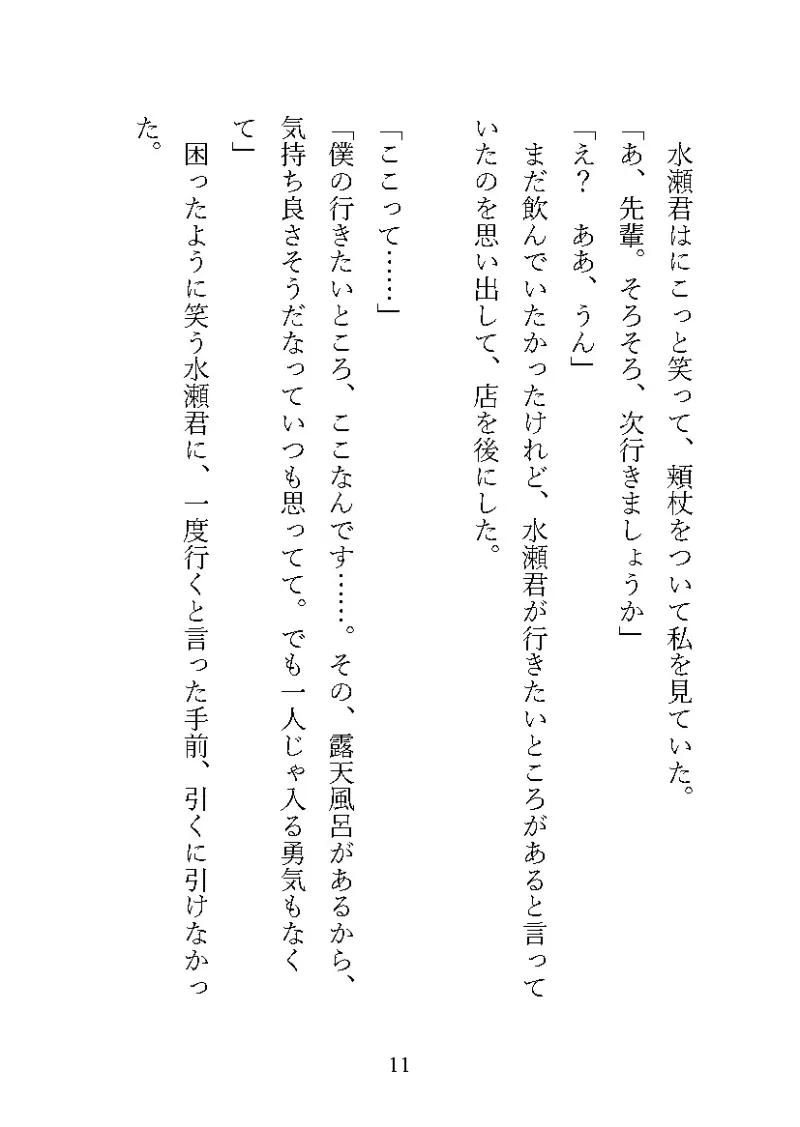 水瀬君はにこっと笑って、頬杖をついて私を見ていた。
「あ、先輩。そろそろ、次行きましょうか」
「え？　ああ、うん」
　まだ飲んでいたかったけれど、水瀬君が行きたいところがあると言って
いたのを思い出して、店を後にした。
「ここって……」
「僕の行きたいところ、ここなんです……。その、露天風呂があるから、
気持ち良さそうだなっていつも思ってて。でも一人じゃ入る勇気もなく
て」
　困ったように笑う水瀬君に、一度行くと言った手前、引くに引けなかっ
た。
11